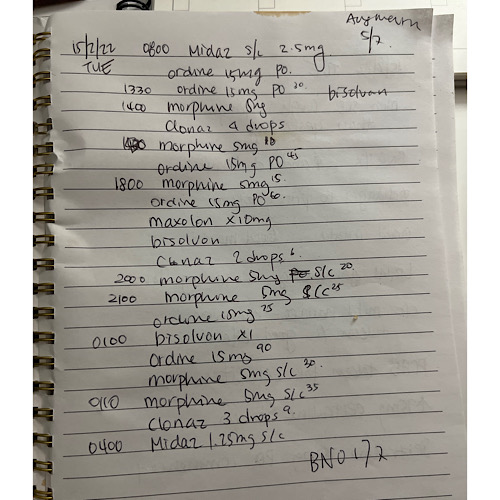 Augmentin
5/7.
15/2/22 0800 Midaz s/c 2.5mg
TUE ordine 15mg PO.
1330 ordine 15mg PO 30 bisolvan
1400 morphine 5mg
Clonaz 4 drops
morphine 5mg 10
ordine 15mg PO 45
1800 morphine 5mg 15.
ordine 15mg PO 60.
maxolon x10mg
bisolvon
Clonaz 2 drops 6.
2000 morphine 5mg PO. s/c 20.
2100 morphine 5mg s/c 25
ordine 15mg 75
0100 bisolvon x1
ordine 15mg 90
morphine 5mg s/c 30.
morphine 5mg s/c 35
clonaz 3 drops 9.
0400 Midaz 1.25mg s/c
BNO 1/7